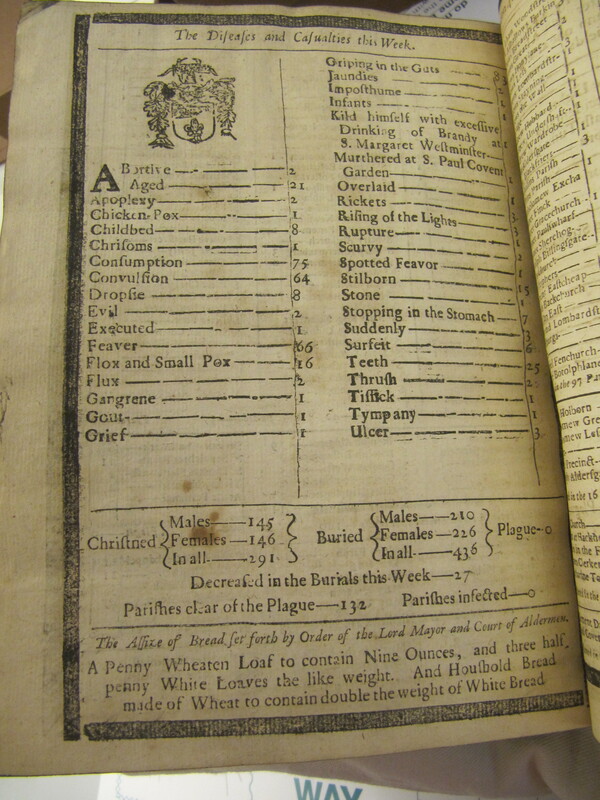 The Diſeaſes and Caſualties this Week.
ABortive — 2
Aged — 21
Apoplexy — 2
Chicken-Pox — 1
Childbed — 8
Chriſoms — 1
Conſumption — 75
Convulſion — 64
Dropſie — 8
Evil — 2
Executed — 1
Feaver — 66
Flox and Small Pox — 16
Flux — 2
Gangrene — 1
Gout — 1
Grief — 1
Griping in the Guts
Jaundies
Impoſthume
Infants
Kild himſelf with exceſſive
Drinking of Brandy at
S. Margaret Weſtminſter
Murthered at S. Paul Covent
Garden
Overlaid
Rickets
Riſing of the Lights
Rupture
Scurvy
Spotted Feavor
Stilborn — 15
Stone — 1
Stopping in the Stomach — 7
Suddenly
Surfeit — 6
Teeth — 25
Thruſh — 2
Tiſſick — 1
Tympany — 1
Ulcer — 3
Chriſtned
Males — 145
Females — 146
In all — 291
Buried
Males — 210
Females — 226
In all — 436
Plague — 0
Decreaſed in the Burials this Week — 27
Pariſhes clear of the Plague — 132 Pariſhes infected — 0
The Aſſize of Bread ſet forth by Order of the Lord Mayor and Court of Aldermen.
A Penny Wheaten Loaf to contain Nine Ounces, and three half
penny White Loaves the like weight. And Houſhold Bread
made of Wheat to contain double the weight of White Bread
WAY